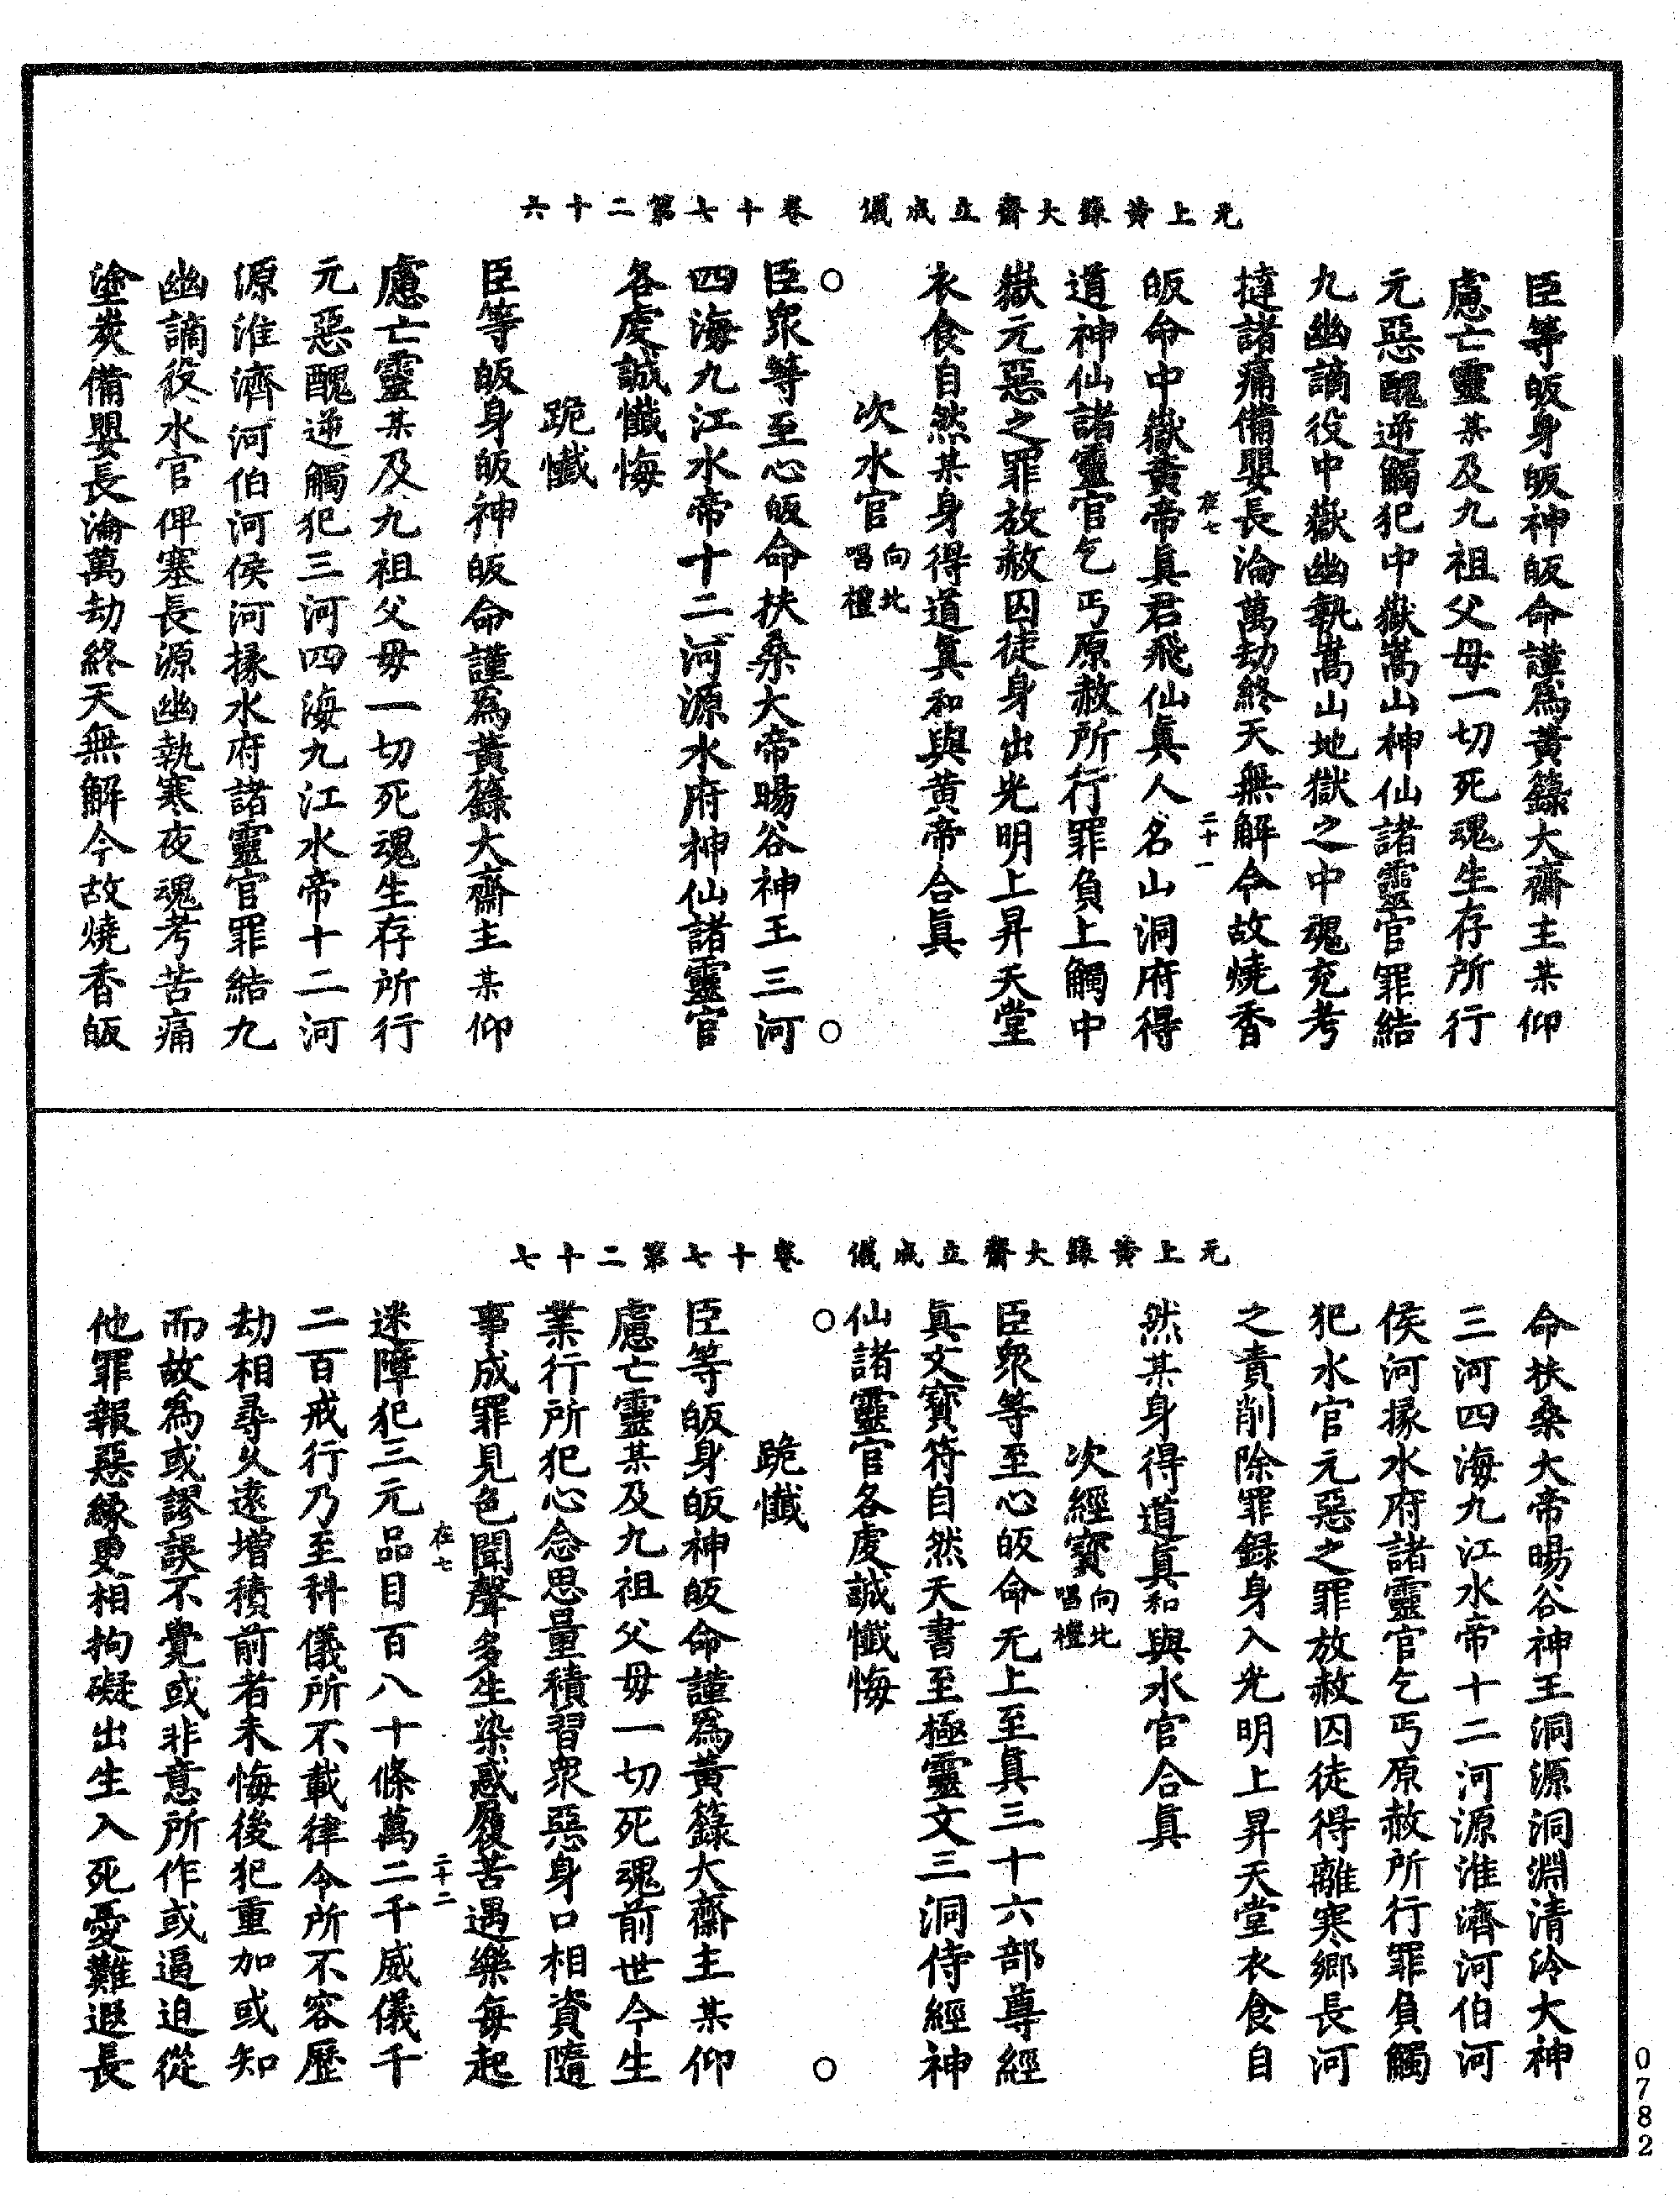 无上黃籙大齋立成儀　卷十七第二十六
臣等皈身皈神皈命謹爲黃籙大齋主某仰
慮亡靈某及九祖父母一切死魂生存所行
元惡醜逆觸犯中嶽嵩山神仙諸靈官罪結
九幽謫役中嶽幽執嵩山地獄之中魂充考
撻諸痛備嬰長淪萬劫終天無解今故燒香
在七　二十一
皈命中嶽黃帝眞君飛仙眞人名山洞府得
道神仙諸靈官乞丐原赦所行罪負上觸中
嶽元惡之罪放赦囚徒身出光明上昇天堂
衣食自然某身得道眞和與黃帝合眞
次水官向北唱禮
○　○
臣衆等至心皈命扶桑大帝暘谷神王三河
四海九江水帝十二河源水府神仙諸靈官
各處誠懺悔
跪懺
臣等皈身皈神皈命謹爲黃籙大齋主某仰
慮亡靈某及九祖父母一切死魂生存所行
元惡醜逆觸犯三河四海九江水帝十二河
源淮濟河伯河侯河掾水府諸靈官罪結九
幽謫役水官俾塞長源幽執寒夜魂考苦痛
塗炭備嬰長淪萬劫終天無解今故燒香皈
无上黃籙大齋立成儀　卷十七第二十七
命扶桑大帝暘谷神王洞源洞淵清泠大神
三河四海九江水帝十二河源淮濟河伯河
侯河掾水府諸靈官乞丐原赦所行罪負觸
犯水官元惡之罪放赦囚徒得離寒鄉長河
之責削除罪録身入光明上昇天堂衣食自
然某身得道眞和與水官合眞
次經寳向北唱禮
臣衆等至心皈命无上至眞三十六部尊經
眞文寳符自然天書至極靈文三洞侍經神
仙諸靈官各處誠懺悔
○　○
跪懺
臣等皈身皈神皈命謹爲黃籙大齋主某仰
慮亡靈某及九祖父母一切死魂前世今生
業行所犯心念思量積習衆惡身口相資隨
事成罪見色聞聲多生染惑履苦遇樂每起
在七　二十二
迷障犯三元品目百八十條萬二千威儀千
二百戒行乃至科儀所不載律令所不容歷
劫相尋久遠增積前者未悔後犯重加或知
而故爲或謬誤不覺或非意所作或逼迫從
他罪報惡緣更相拘礙出生入死憂難遐長
0782